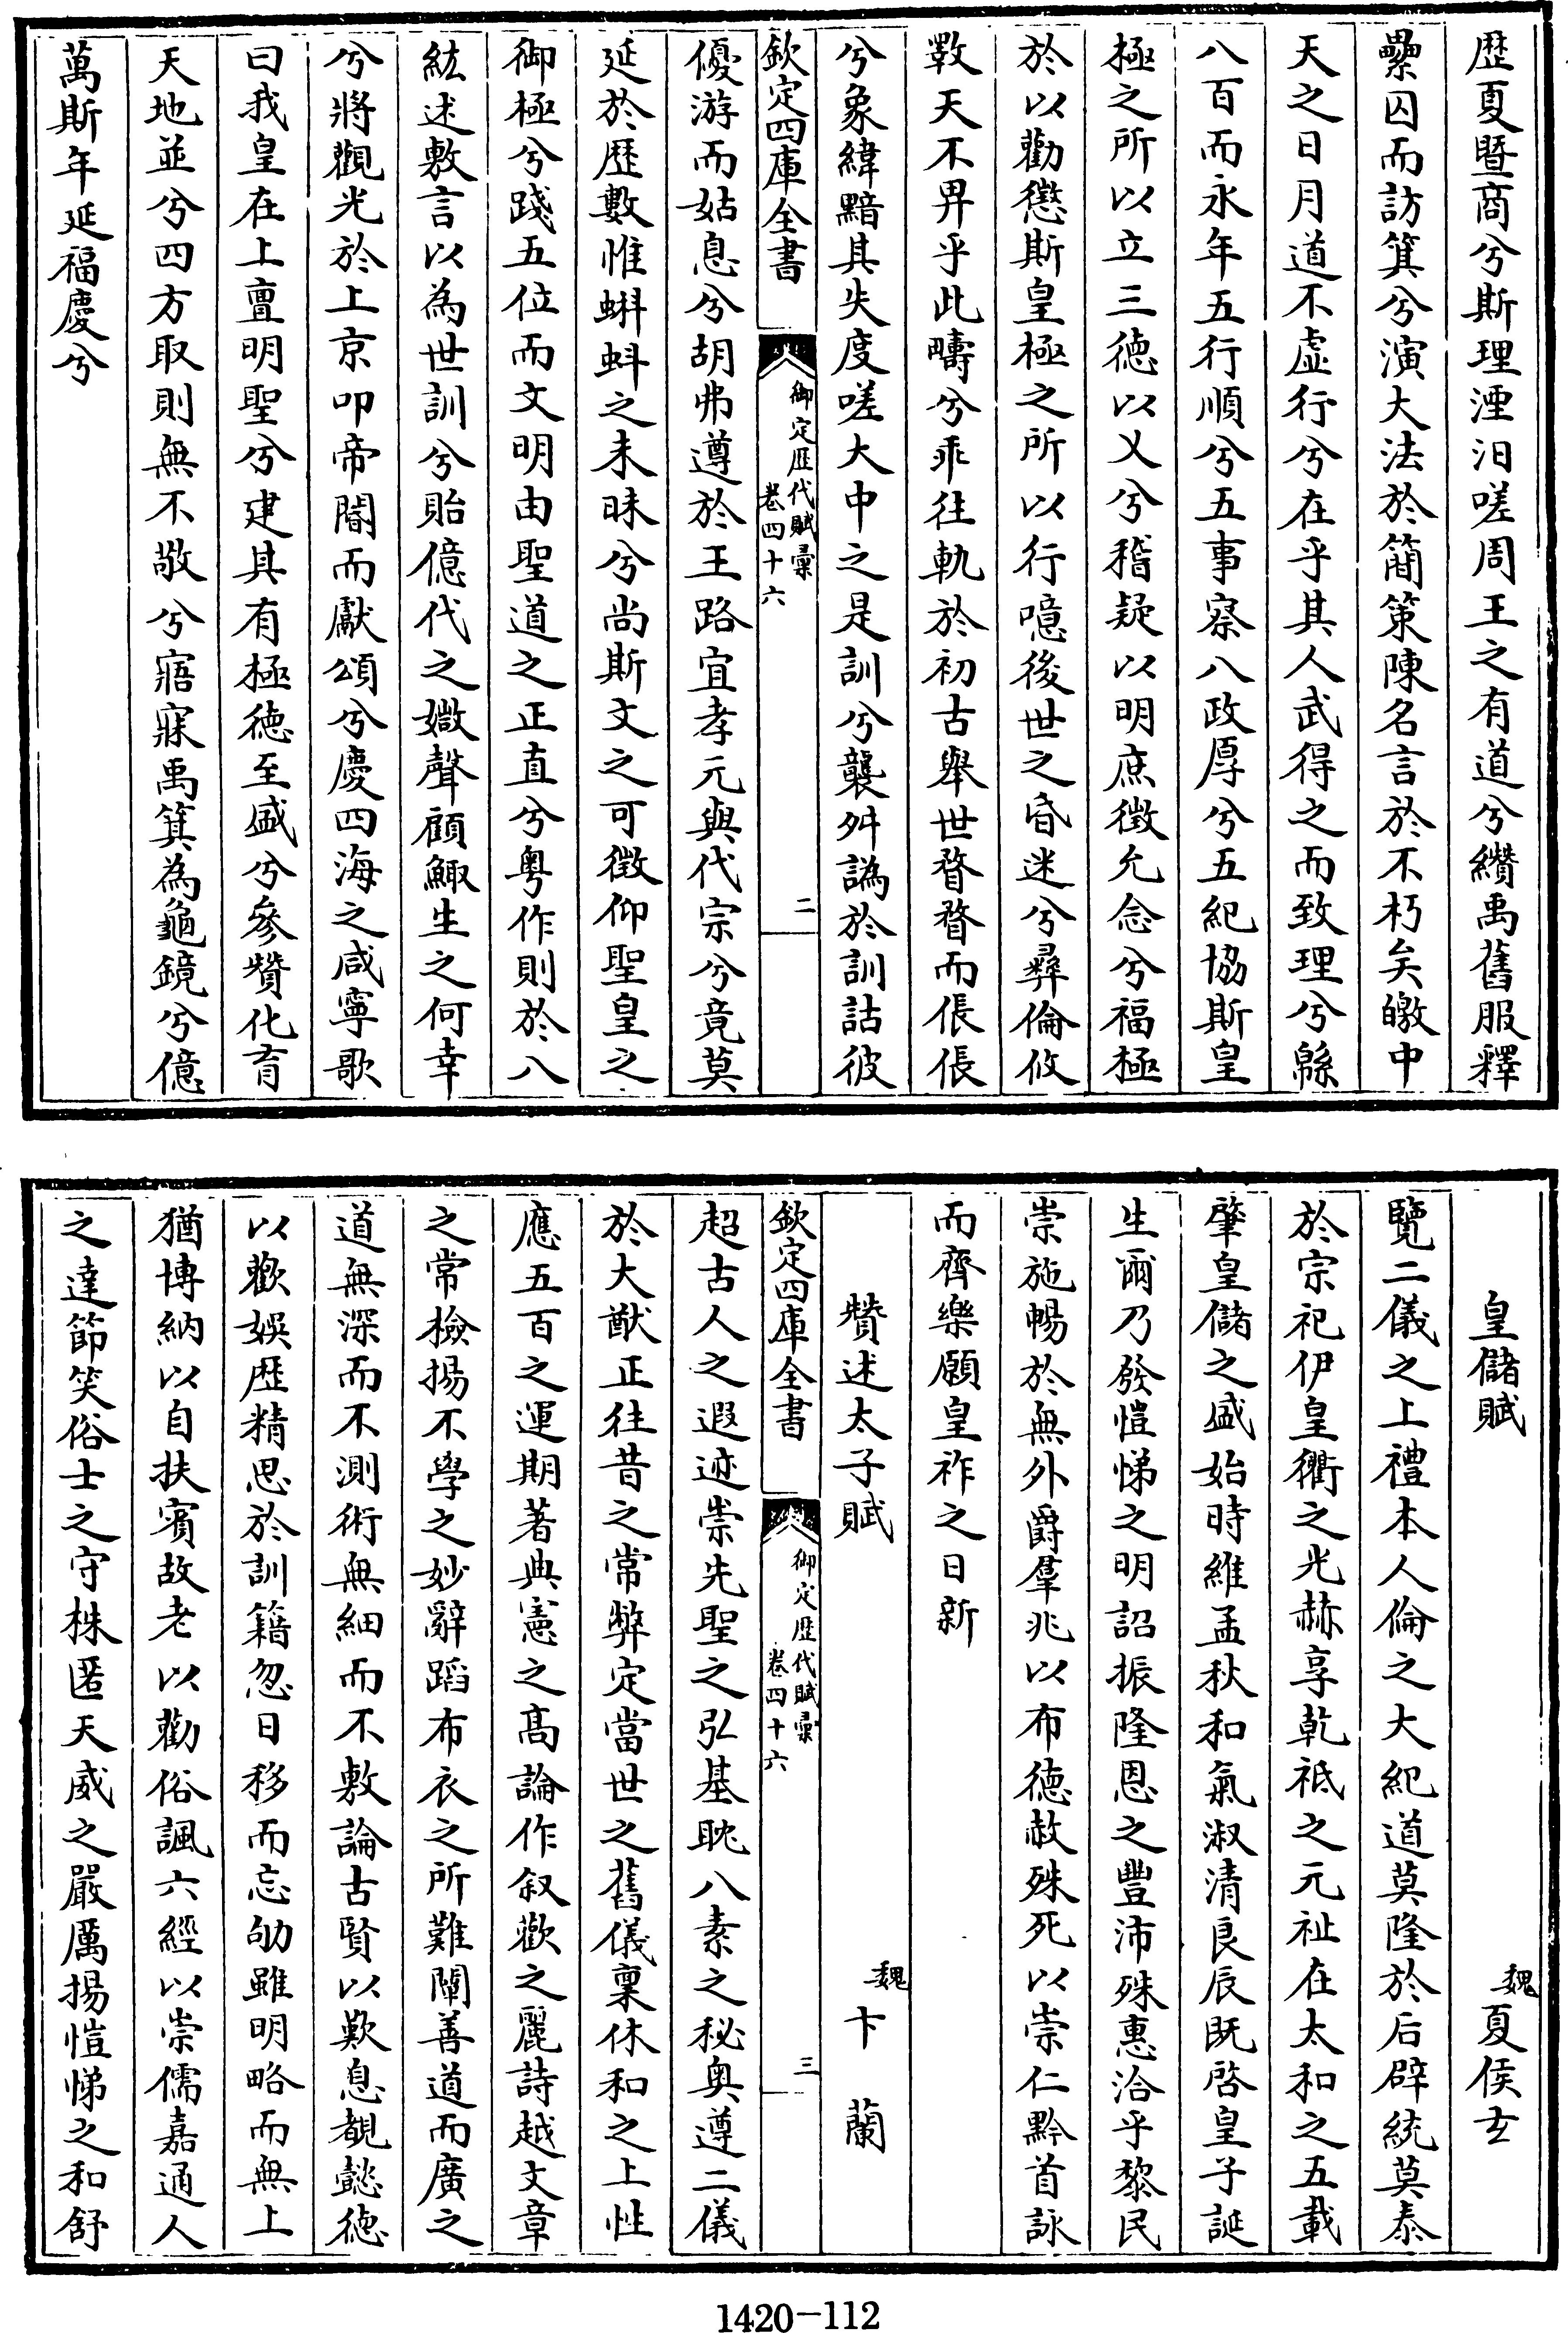 歴夏暨商兮斯理湮汩嗟周王之有道兮纘禹舊服釋
纍囚而訪箕兮演大法於簡策陳名言於不朽矣皦中
天之日月道不虛行兮在乎其人武得之而致理兮緜
八百而永年五行順兮五事察八政厚兮五紀協斯皇
極之所以立三德以乂兮稽疑以明庶徵允念兮福極
於以勸懲斯皇極之所以行噫後世之昏迷兮彝倫攸
斁天不畀乎此疇兮乖往軌於初古舉世瞀瞀而倀倀
兮象緯黯其失度嗟大中之是訓兮襲舛譌於訓詁彼
欽定四庫全書
御定歷代賦彙
卷四十六
二
優游而姑息兮胡弗遵於王路宜孝元與代宗兮竟莫
延於歷數惟蝌蚪之未昧兮尚斯文之可徵仰聖皇之
御極兮踐五位而文明由聖道之正直兮粤作則於八
紘述敷言以為世訓兮貽億代之媺聲顧鯫生之何幸
兮將觀光於上京叩帝閽而獻頌兮慶四海之咸寧歌
曰我皇在上亶明聖兮建其有極德至盛兮參贊化育
天地並兮四方取則無不敬兮寤寐禹箕為龜鏡兮億
萬斯年延福慶兮
皇儲賦
魏夏侯玄
覽二儀之上禮本人倫之大紀道莫隆於后辟統莫泰
於宗祀伊皇衢之光赫享乾祗之元祉在太和之五載
肇皇儲之盛始時維孟秋和氣淑清良辰既啓皇子誕
生爾乃發愷悌之明詔振隆恩之豐沛殊惠洽乎黎民
崇施暢於無外爵羣兆以布德赦殊死以崇仁黔首詠
而齊樂願皇祚之日新
贊述太子賦
魏卞蘭
欽定四庫全書
御定歷代賦彙
卷四十六
三
超古人之遐迹崇先聖之弘基耽八素之秘奥遵二儀
於大猷正往昔之常弊定當世之舊儀稟休和之上性
應五百之運期著典憲之高論作叙歡之麗詩越文章
之常檢揚不學之妙辭蹈布衣之所難闡善道而廣之
道無深而不測術無細而不敷論古賢以歎息覩懿德
以歡娱歷精思於訓籍忽日移而忘劬雖明略而無上
猶博納以自扶賓故老以勸俗諷六經以崇儒嘉通人
之達節笑俗士之守株匿天威之嚴厲揚愷悌之和舒
1420-112